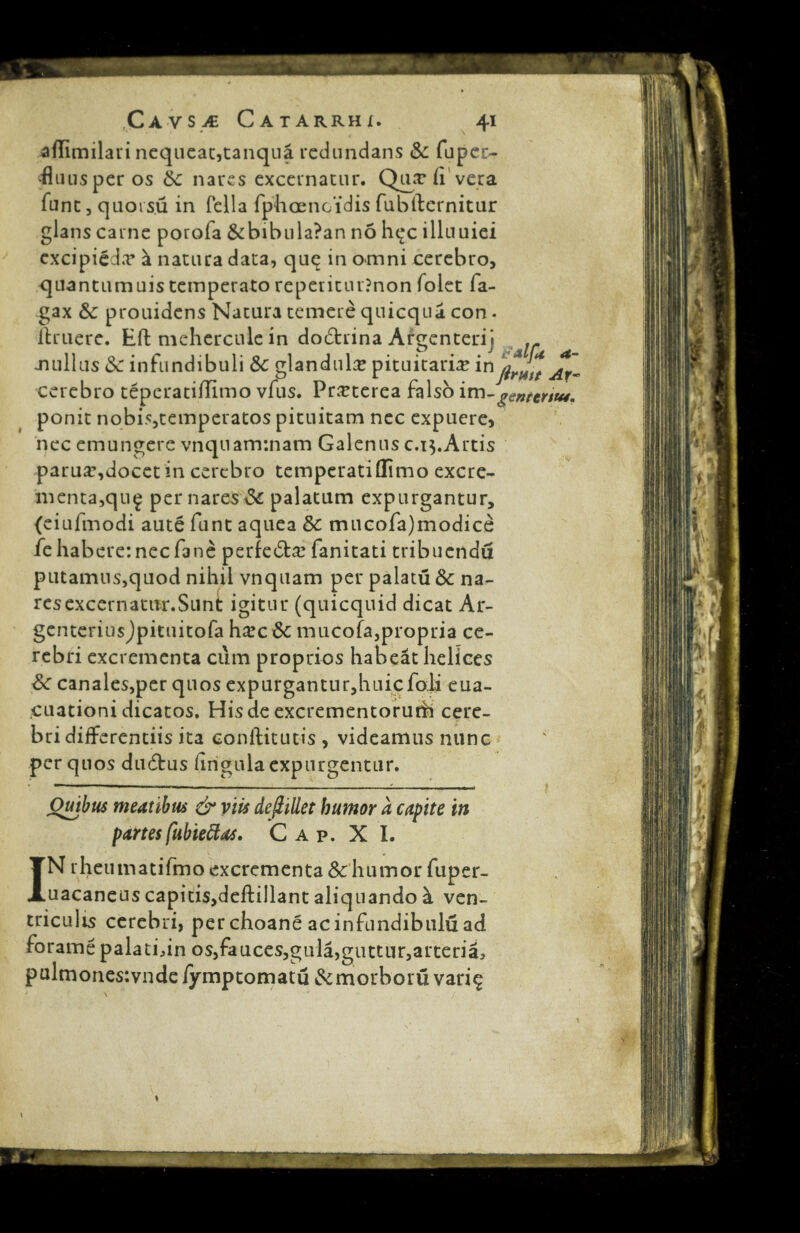 CAVSÆ CATARRHI. 41
aſſimilari nequeat,tanquā redundans & ſuper-
fluus per os & nares excernatur. Quæ ſi vera
ſunt, quorsū in ſella ſphœnoïdis ſubſternitur
glans carne poroſa & bibula? an nō hęc illuuiei
excipiēdæ à natura data, quę in omni cerebro,
quantumuis temperato reperitur? non ſolet ſa-
gax & prouidens Natura temerè quicquā con-
ſtruere. Eſt mehercule in doctrina Argenterij
nullus & infundibuli & glandulæ pituitariæ in
Falſa a-
ſtruit Ar-
genterius.
cerebro tēperatiſſimo vſus. Præterea falsò im-
ponit nobis,temperatos pituitam nec expuere,
nec emungere vnquam:nam Galenus c.13.Artis
paruæ,docet in cerebro temperatiſſimo excre-
menta,quę per nares & palatum expurgantur,
(eiuſmodi autē ſunt aquea & mucoſa)modicè
ſe habere: nec ſanè perfectæ ſanitati tribuendū
putamus,quod nihil vnquam per palatū & na-
res excernatur. Sunt igitur (quicquid dicat Ar-
genterius)pituitoſa hæc & mucoſa,propria ce-
rebri excrementa cùm proprios habeāt helices
& canales,per quos expurgantur,huic ſoli eua-
cuationi dicatos. His de excrementorum cere-
bri differentiis ita conſtitutis , videamus nunc
per quos ductus ſingula expurgentur.
Quibus meatibus & viis deſtillet humor à capite in
partes ſubiectas. CAP. XI.
IN rheumatiſmo excrementa & humor ſuper-
uacaneus capitis,deſtillant aliquando à ven-
triculis cerebri, per choanē ac infundibulū ad
foramē palati,in os,fauces,gulā,guttur,arteriā,
pulmones:vnde ſymptomatū & morborū varię